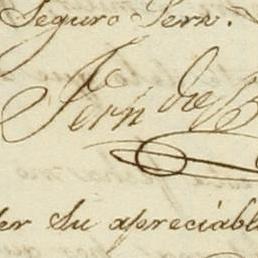 Seguro Serv.
Fern de B
er Su apreciabl